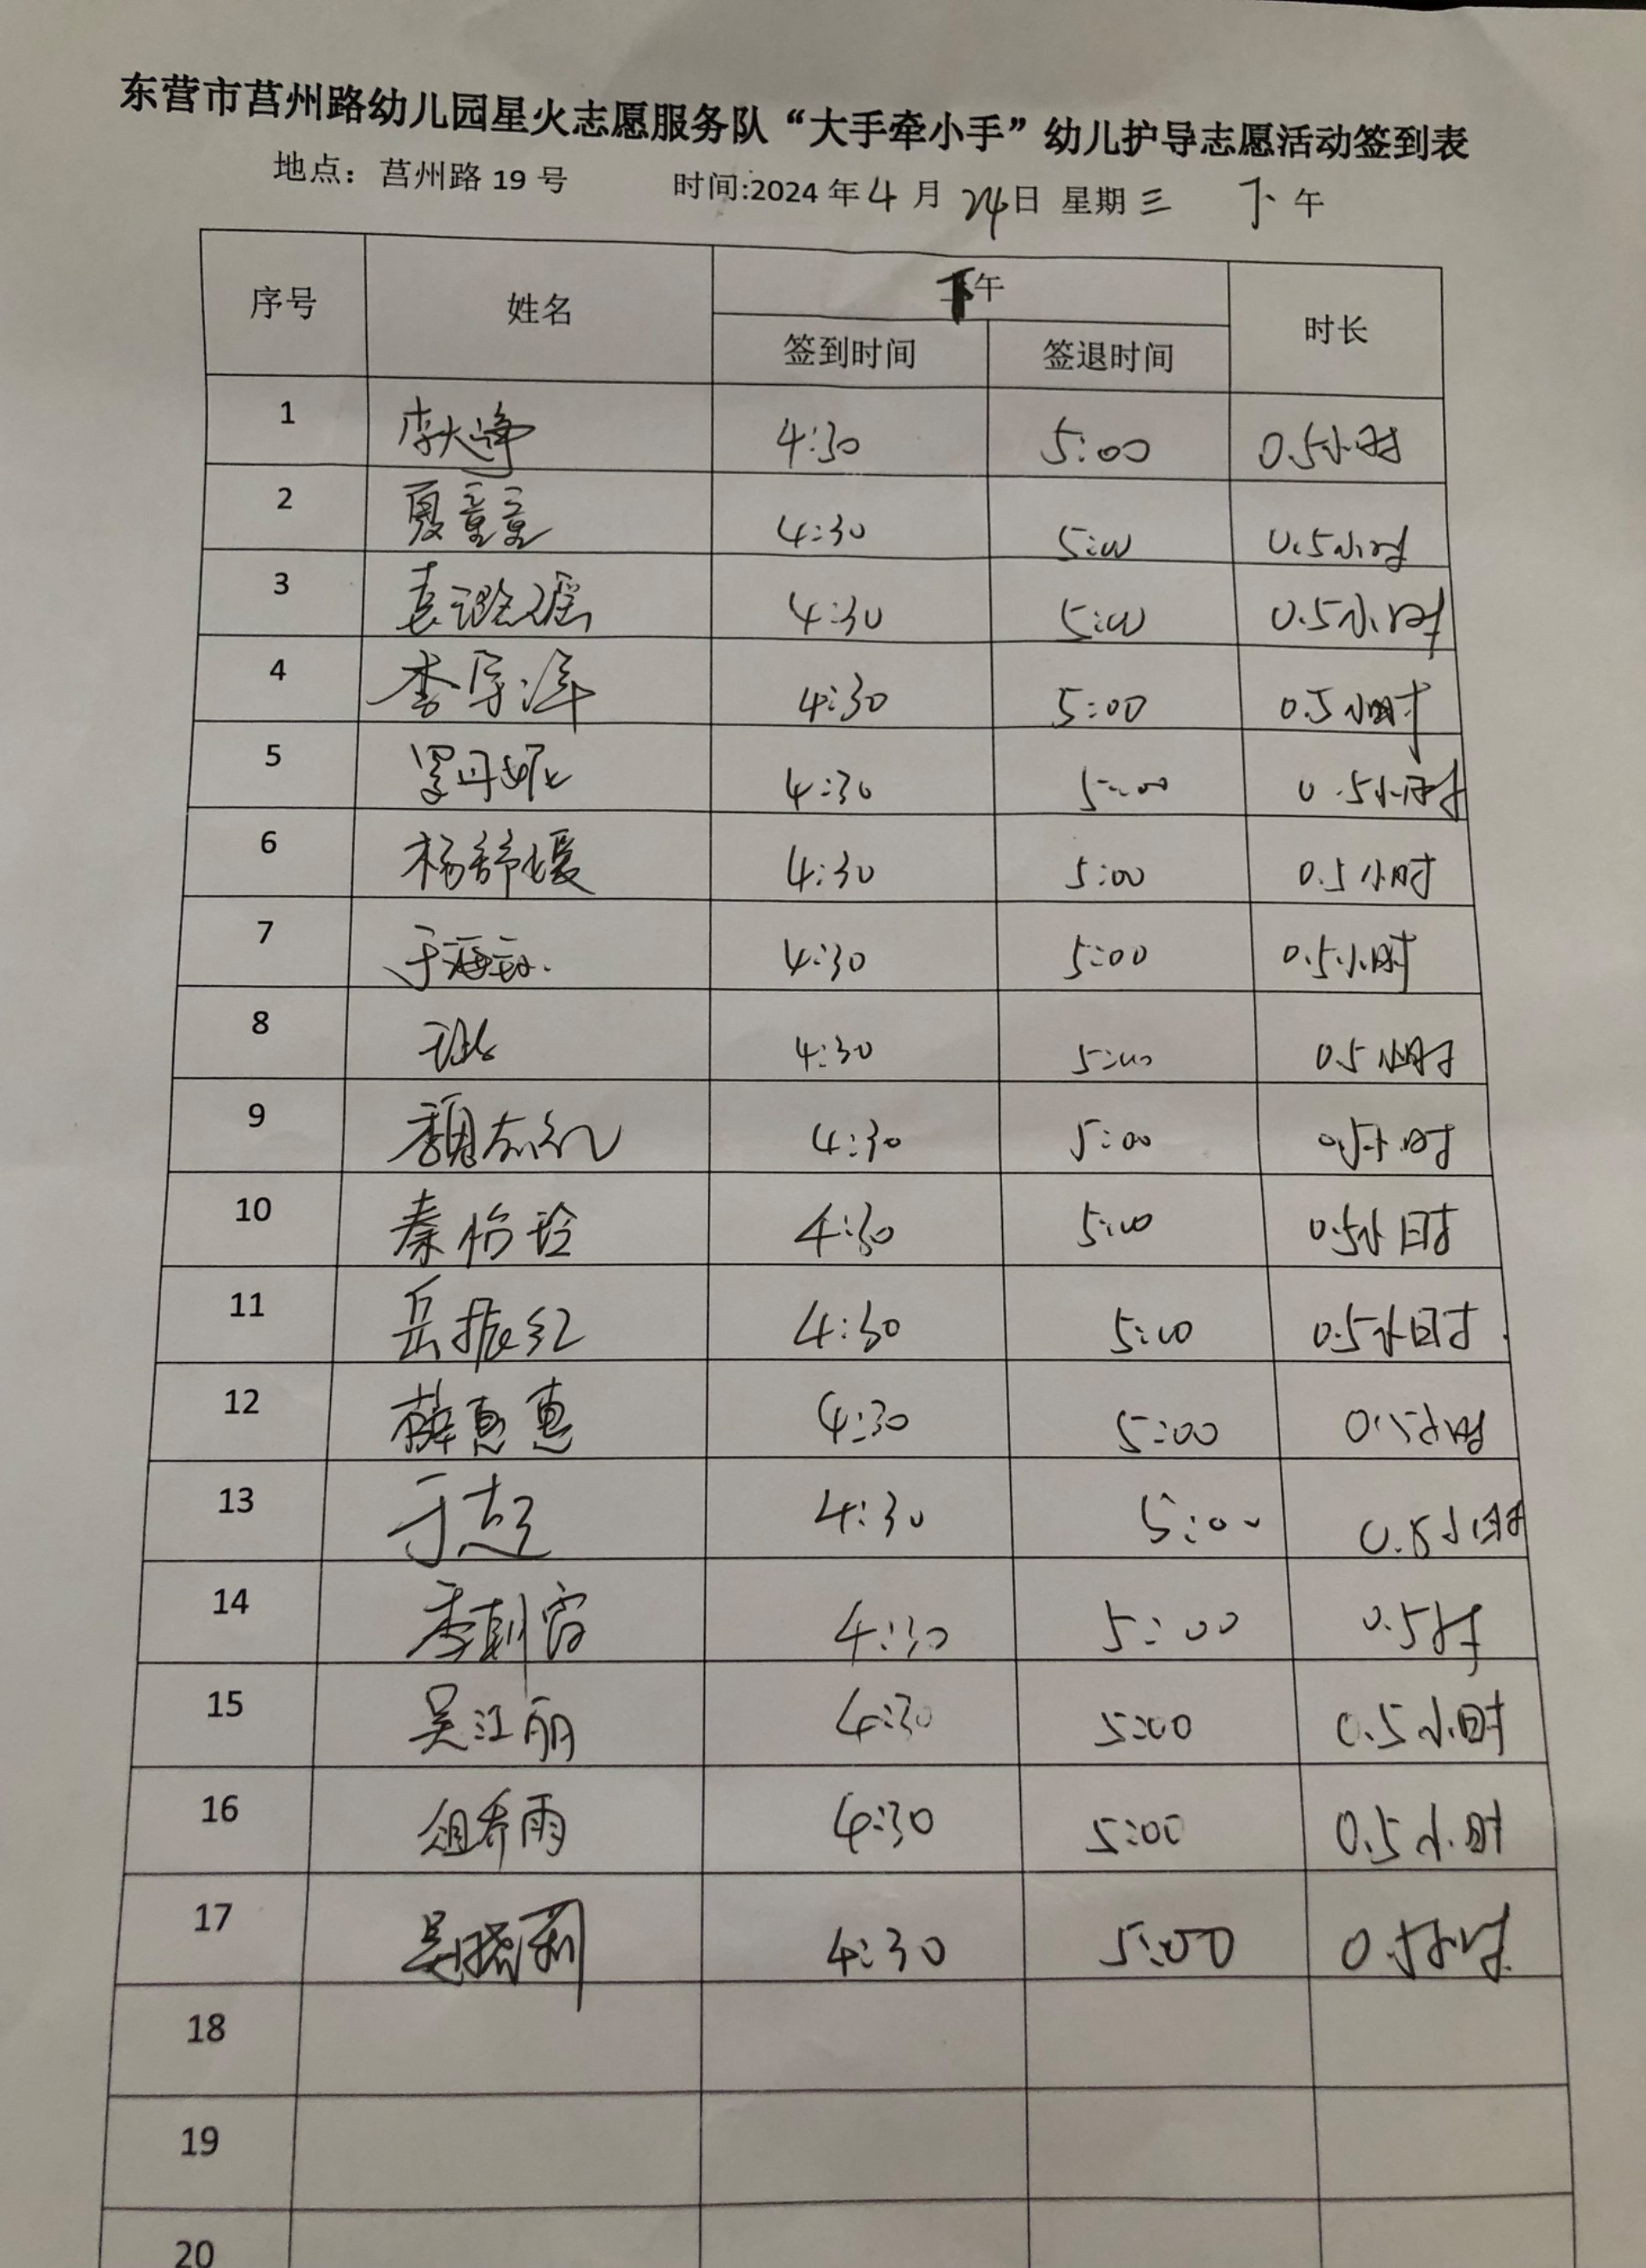 东营市莒州路幼儿园星火志愿服务队“大手牵小手”幼儿护导志愿活动签到表
地点：莒州路 19 号 时间:2024 年 4 月 24 日 星期 三 下 午
序号 姓名 下午 时长
签到时间 签退时间
1 4:30 5:00 0.5小时
2 夏童童 4:30 5:00 0.5小时
3 袁潞瑶 4:30 5:00 0.5小时
4 李 4:30 5:00 0.5小时
5 4:30 5:00 0.5小时
6 杨舒媛 4:30 5:00 0.5小时
7 于 4:30 5:00 0.5小时
8 4:30 5:00 0.5小时
9 魏志红 4:30 5:00 0.5小时
10 秦怡玲 4:30 5:00 0.5小时
11 岳振红 4:30 5:00 0.5小时
12 薛惠惠 4:30 5:00 0.5小时
13 于超 4:30 5:00 0.5小时
14 季 4:30 5:00 0.5时
15 吴江丽 4:30 5:00 0.5小时
16 俎乔雨 4:30 5:00 0.5小时
17 吴晓莉 4:30 5:00 0.5小时
18
19
20